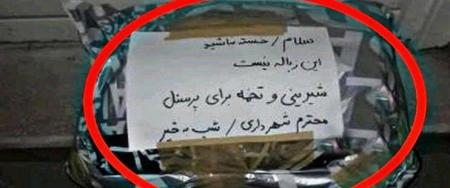 سلام / خسته نباشید
این زباله نیست
شیرینی و تخمه برای پرسنل
محترم شهرداری / شب به خیر